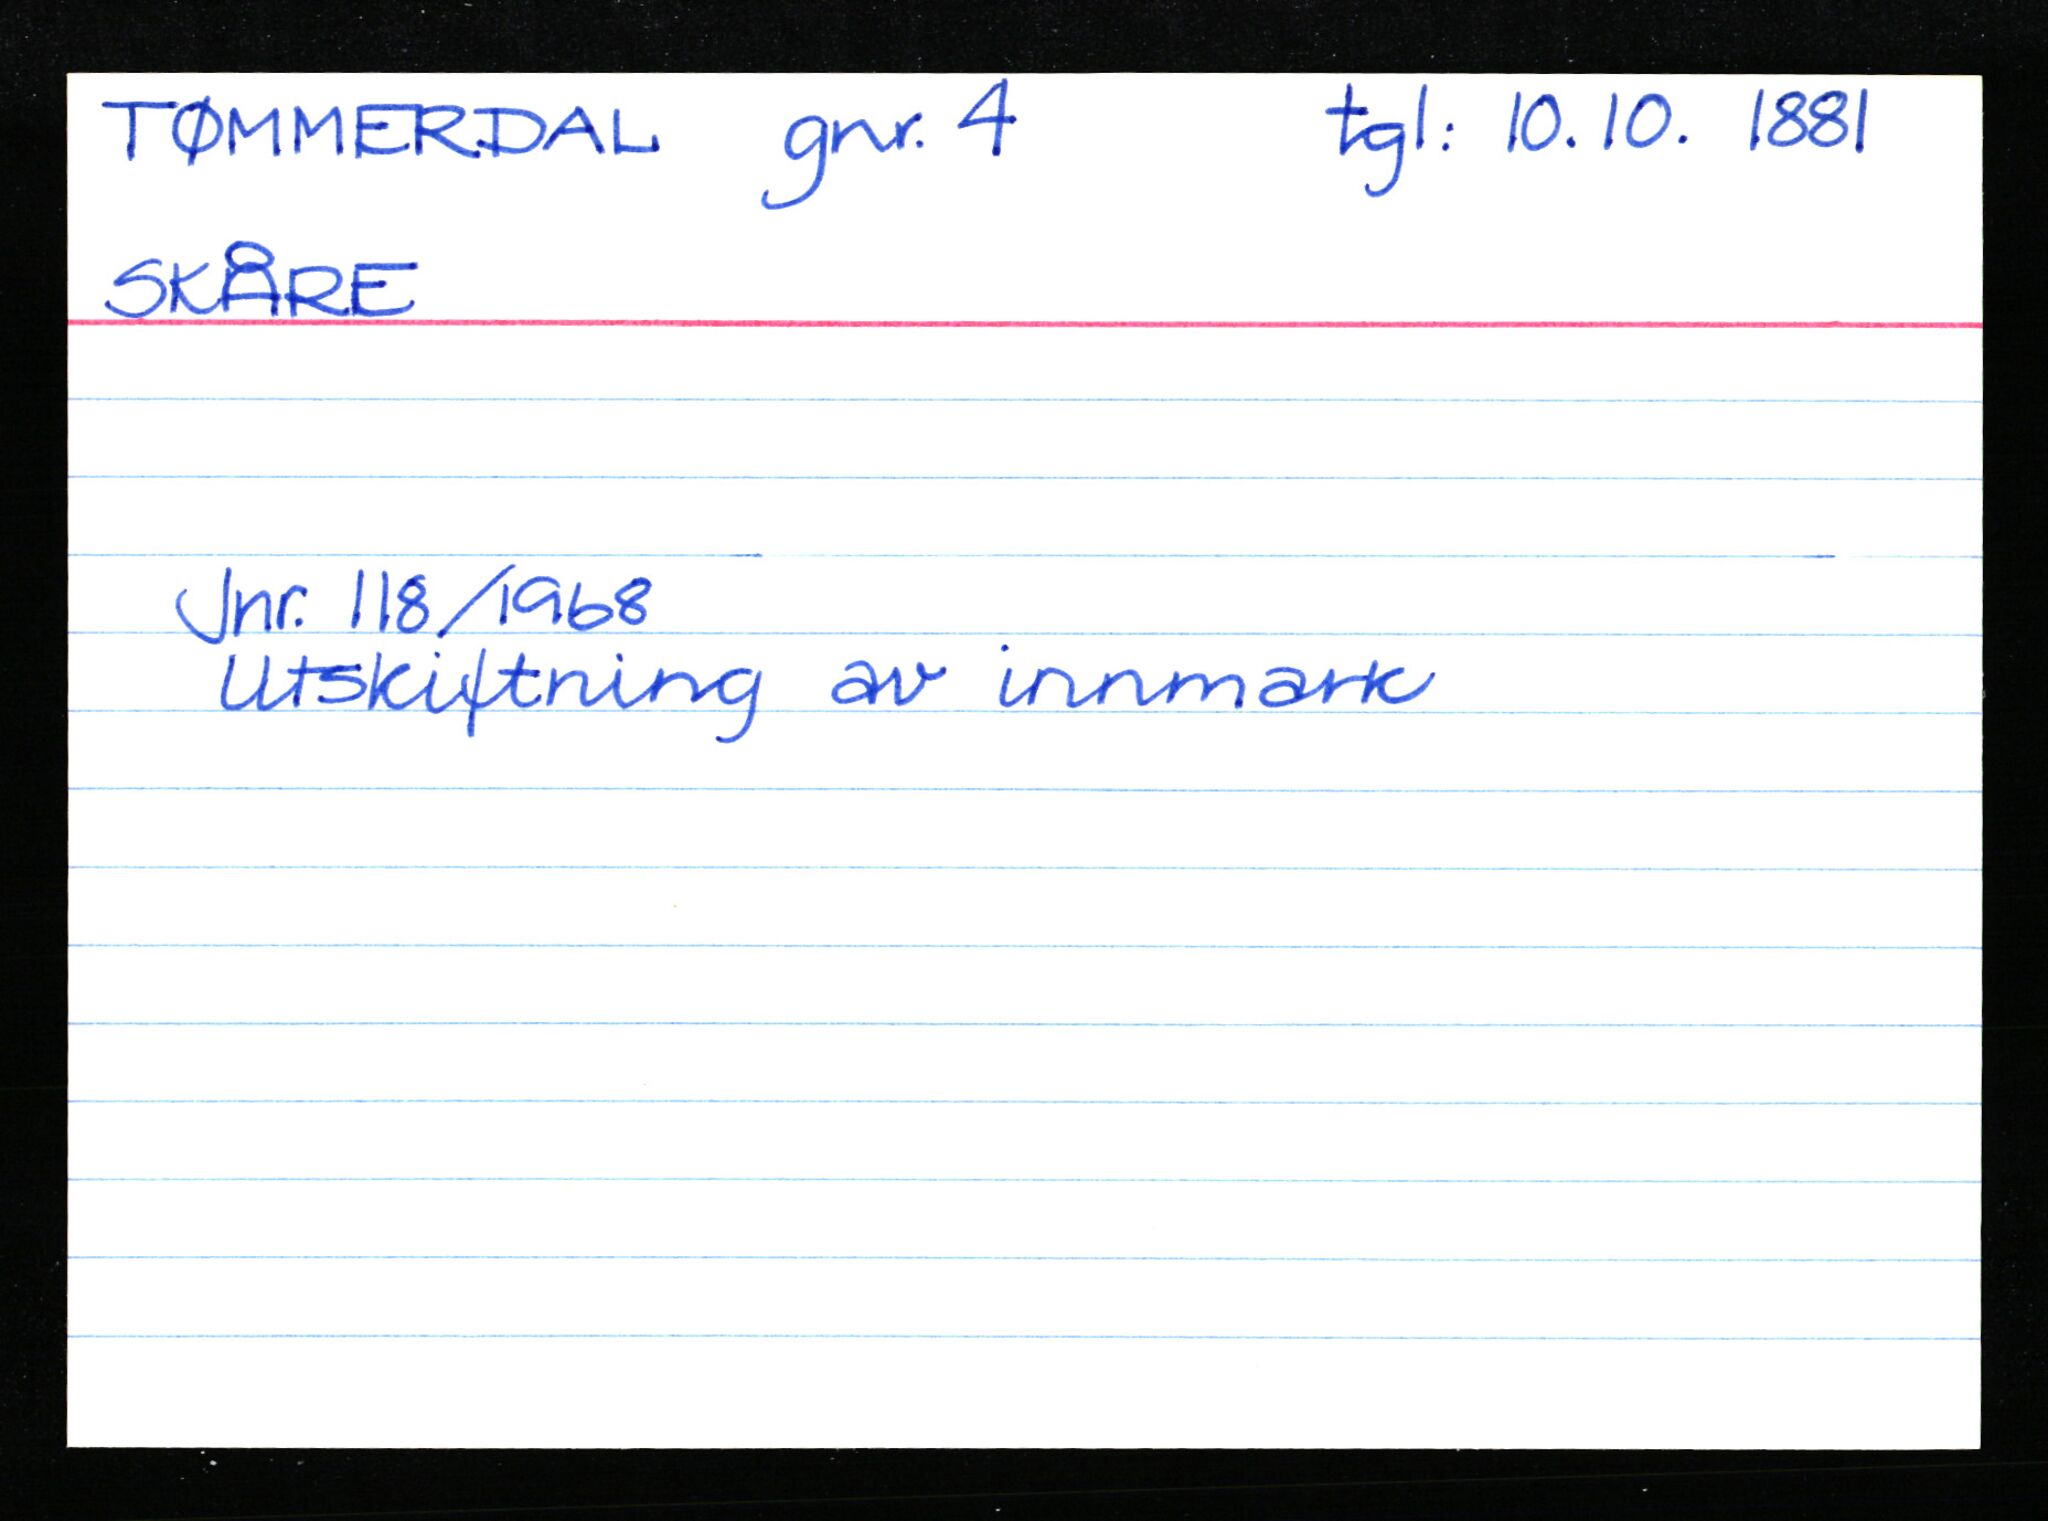 TØMMERDAL gnr. 4 tgl: 10.10. 1881
SKÅRE
Jnr. 118/1968
Utskiftning av innmark